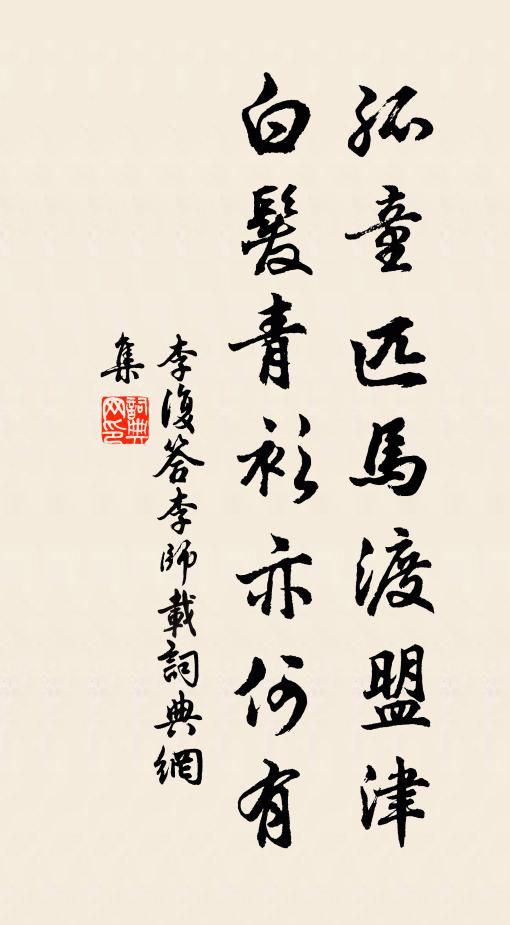 孤童匹馬渡盟津
白髮青衫亦何有
李復答李師載詞典網
集
詞典网印